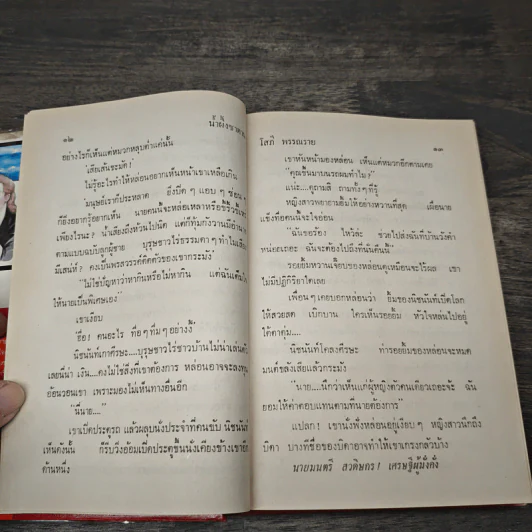 ๑๒
น้ำผึ้งขาด
อย่างไรก็เห็นแต่หมวกหลุบต่ำแค่นั้น
"เสียเส้นซะมัด!
ไม่รู้อะไรทำให้หล่อนอยากเห็นหน้าเขาเหลือเกิน
มนุษย์เราก็ประหลาด ยิ่งปิดๆ แอบๆ ซ่อน
ก็ยิ่งอยากรู้อยากเห็น นายคนนี้จะหล่อเหลาหรือขี้ริ้วขี้เหร่
เพียงไรนะ? น้ำเสียงถึงห้วนไปนิด แต่ก็ทุ้มกังวานมีอำนาจ
ตามแบบฉบับลูกผู้ชาย บุรุษชาวไร่ธรรมดาๆ ทำไมเสียง
มีเสน่ห์? คงเป็นพรสวรรค์ติดตัวของเขากระมัง!
"ไม่ใช่ปัญหาว่าหากินหรือไม่หากิน แต่ฉันเต็มใจ
ให้นายเป็นพิเศษเอง"
เขาเงียบ
"ธ์อ! คนอะไร ทื่อๆ ทึ่มๆ อย่างงี้"
นิชนันท์เกาศีรษะ....บุรุษชาวไร่ชาวบ้านไม่น่าเล่นตัว
เลยนี่นา เงิน....คงไม่ใช่สิ่งที่เขาต้องการ หล่อนอาจจะลงทุน
อ้อนวอนเขา เพราะมองไม่เห็นทางอื่นอีก
"นี่นาย...."
เขาเปิดประตูรถ แล้วผลุบนั่งประจำที่คนขับ นิชนันท์
เห็นดังนั้น ก็รีบวิ่งอ้อมเปิดประตูขึ้นนั่งเคียงข้างเขาอีก
ด้านหนึ่ง
โสภี พรรณราย
๑๓
เขาหันหน้ามองหล่อน เห็นแต่หมวกอีกตามเคย
"คุณขึ้นมาบนรถผมทำไม?"
แน่ะ....ดูถามสิ ถามทั้งๆ ที่รู้
หญิงสาวพยายามยิ้มให้อย่างหวานที่สุด เผื่อนาย
แข็งทื่อคนนี้จะใจอ่อน
"ฉันขอร้อง ไหว้ล่ะ ช่วยไปส่งฉันที่บ้านวังดำ
หน่อยเถอะ ฉันจะต้องไปถึงที่นั่นคืนนี้"
รอยยิ้มหวานเจี๊ยบของหล่อนดูเหมือนจะไร้ผล เขา
ไม่มีปฏิกิริยาใดเลย
เพื่อนๆ เคยบอกหล่อนว่า ยิ้มของนิชนันท์เปิดโลก
ให้สวยสด เบิกบาน ใครเห็นรอยยิ้ม หัวใจหล่นไปอยู่
ใต้ตาตุ่ม....
นิชนันท์ใคลงศีรษะ ท่ารอยยิ้มของหล่อนจะหมด
มนต์ขลังเสียแล้วกระมัง
"นาย....นึกว่าเห็นแก่ผู้หญิงตัวคนเดียวเถอะจ้ะ ฉัน
ยอมให้ค่าตอบแทนตามที่นายต้องการ"
แปลก! เขานั่งฟังหล่อนอยู่เงียบๆ หญิงสาวนึกถึง
บิดา บางทีชื่อของบิดาอาจทำให้เขาเกรงกลัวบ้าง
นายมนตรี สวดิษกร! เศรษฐีผู้มั่งคั่ง